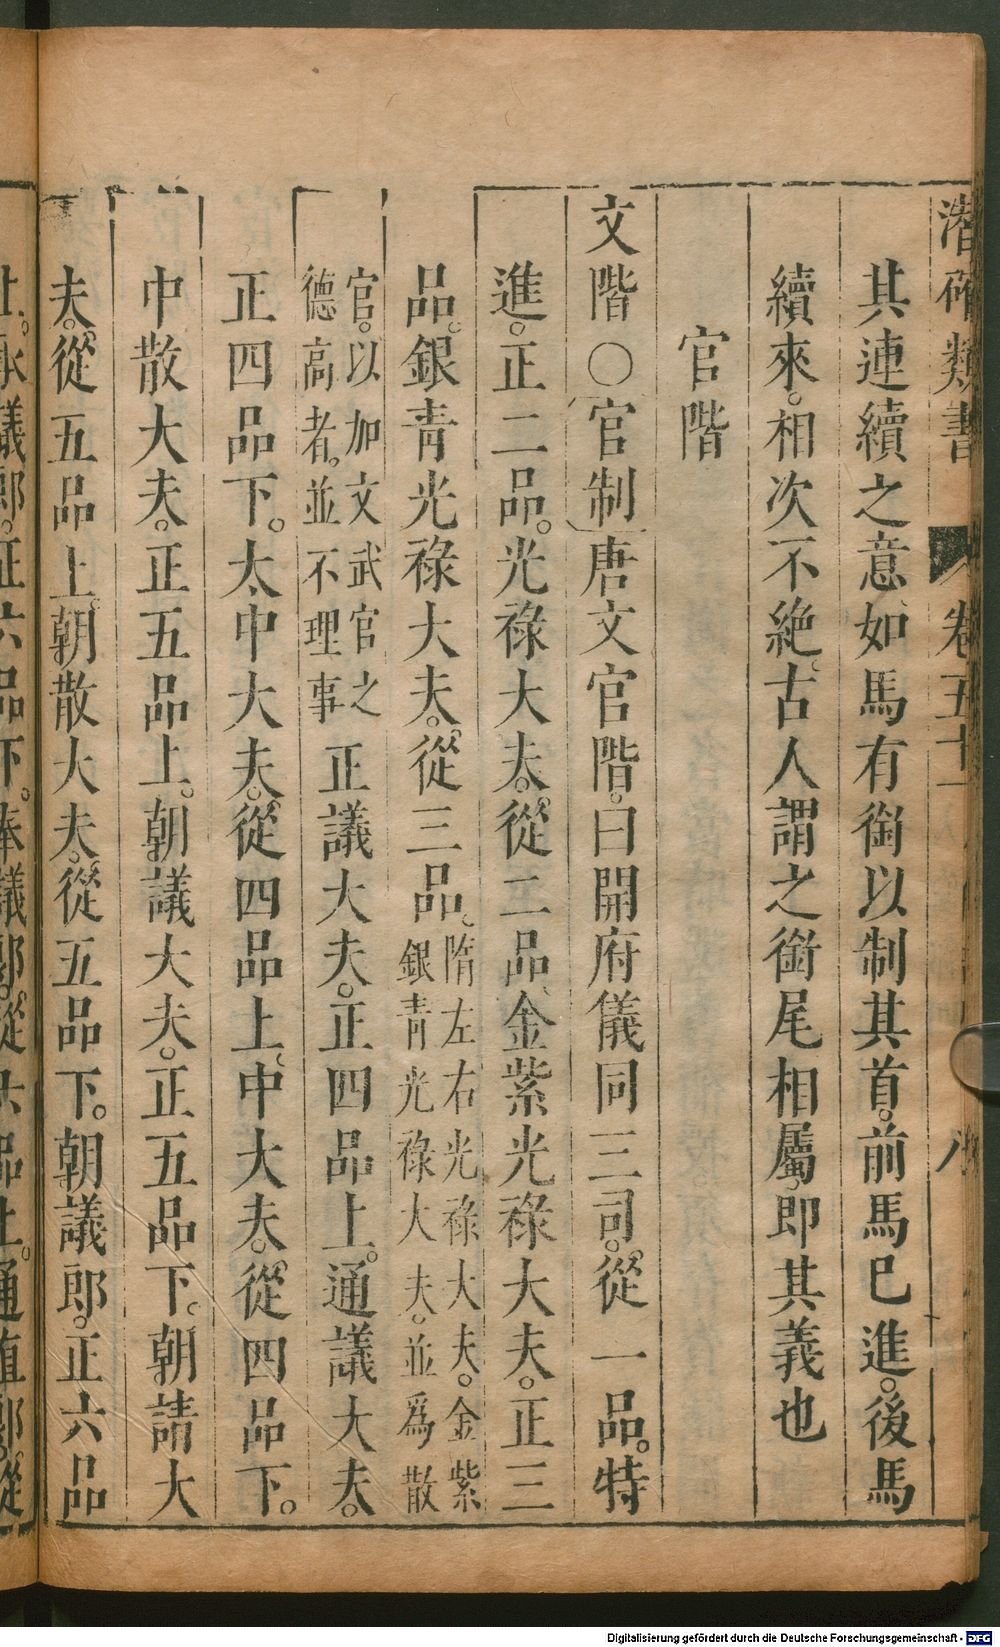 潛確類書 卷五十一
其連續之意如馬有銜以制其首。前馬已進。後馬
續來。相次不絶。古人謂之銜尾相屬。即其義也
官階
文階○官制唐文官階。曰開府儀同三司。從一品。特
進。正二品。光祿大夫。從二品。金紫光祿大夫。正三
品。銀青光祿大夫。從三品。隋左右光祿大夫。金紫
銀青光祿大夫。並爲散
官。以加文武官之
德高者。並不理事正議大夫。正四品上。通議大夫。
正四品下。太中大夫。從四品上。中大夫。從四品下。
中散大夫。正五品上。朝議大夫。正五品下。朝請大
夫。從五品上。朝散大夫。從五品下。朝議郎。正六品
上。承議郎。正六品下。奉議郎。從六品上。通直郎。從
Digitalisierung gefördert durch die Deutsche Forschungsgemeinschaft - DFG